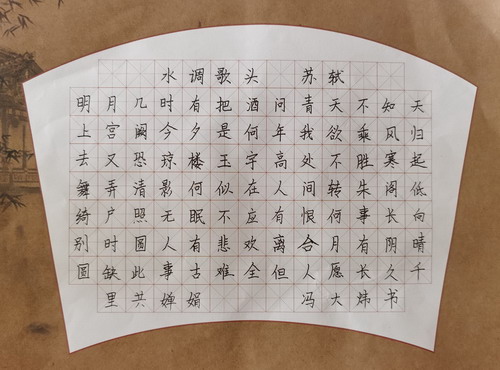 水调歌头 苏轼
明月几时有把酒问青天不知天
上宫阙今夕是何年我欲乘风归
去又恐琼楼玉宇高处不胜寒起
舞弄清影何似在人间转朱阁低
绮户照无眠不应有恨何事长向
别时圆人有悲欢离合月有阴晴
圆缺此事古难全但人愿长久千
里共婵娟 冯大炜书